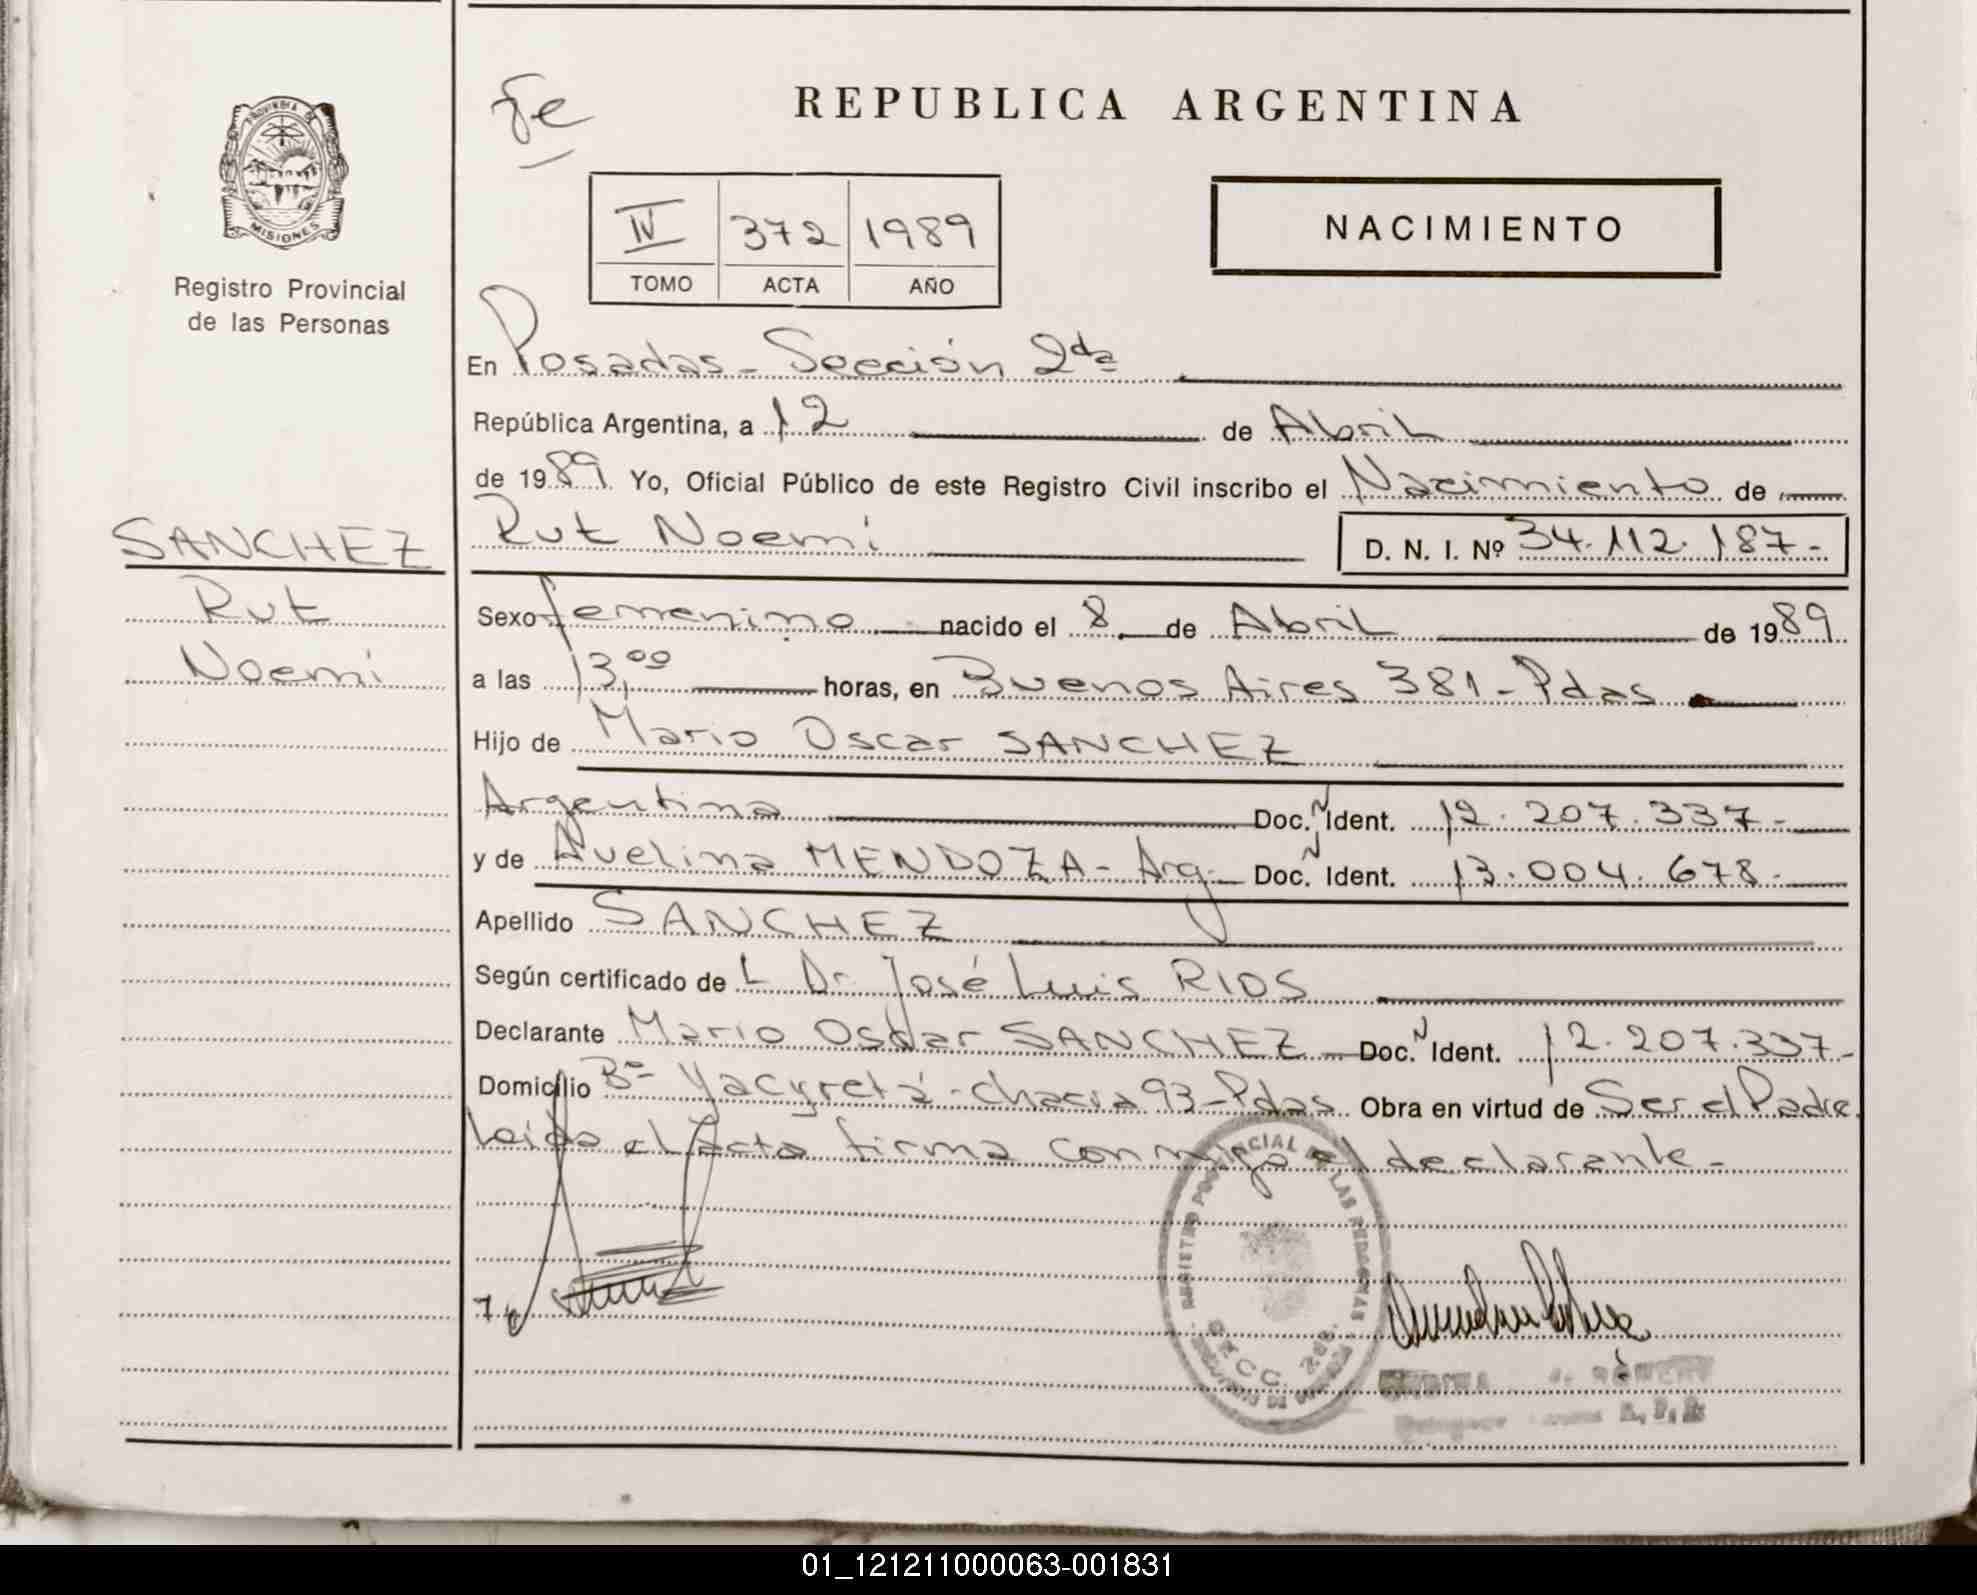 REPUBLICA ARGENTINA
PROVINCIA DE
MISIONES
Registro Provincial
de las Personas
IV 372 1989
TOMO ACTA AÑO
NACIMIENTO
En Posadas - Sección 2da
República Argentina, a 12 de Abril
de 1989. Yo, Oficial Público de este Registro Civil inscribo el Nacimiento de
SANCHEZ
Rut
Noemi
Rut Noemi D. N. I. Nº 34.112.187-
Sexo femenino nacido el 8 de Abril de 1989
a las 13,00 horas, en Buenos Aires 381 - Pdas
Hijo de Mario Oscar SANCHEZ
Argentina Doc. N Ident. 12.207.337-
y de Avelina MENDOZA - Arg. Doc. N Ident. 13.004.678-
Apellido SANCHEZ
Según certificado de L Dr José Luis RIOS
Declarante Mario Oscar SANCHEZ Doc. N Ident. 12.207.337-
Domicilio Bº Yacyretá - chacra 93 - Pdas Obra en virtud de Ser el Padre.
Leida el Acta firma conmigo el declarante -
REGISTRO PROVINCIAL DE LAS PERSONAS
01_121211000063-001831